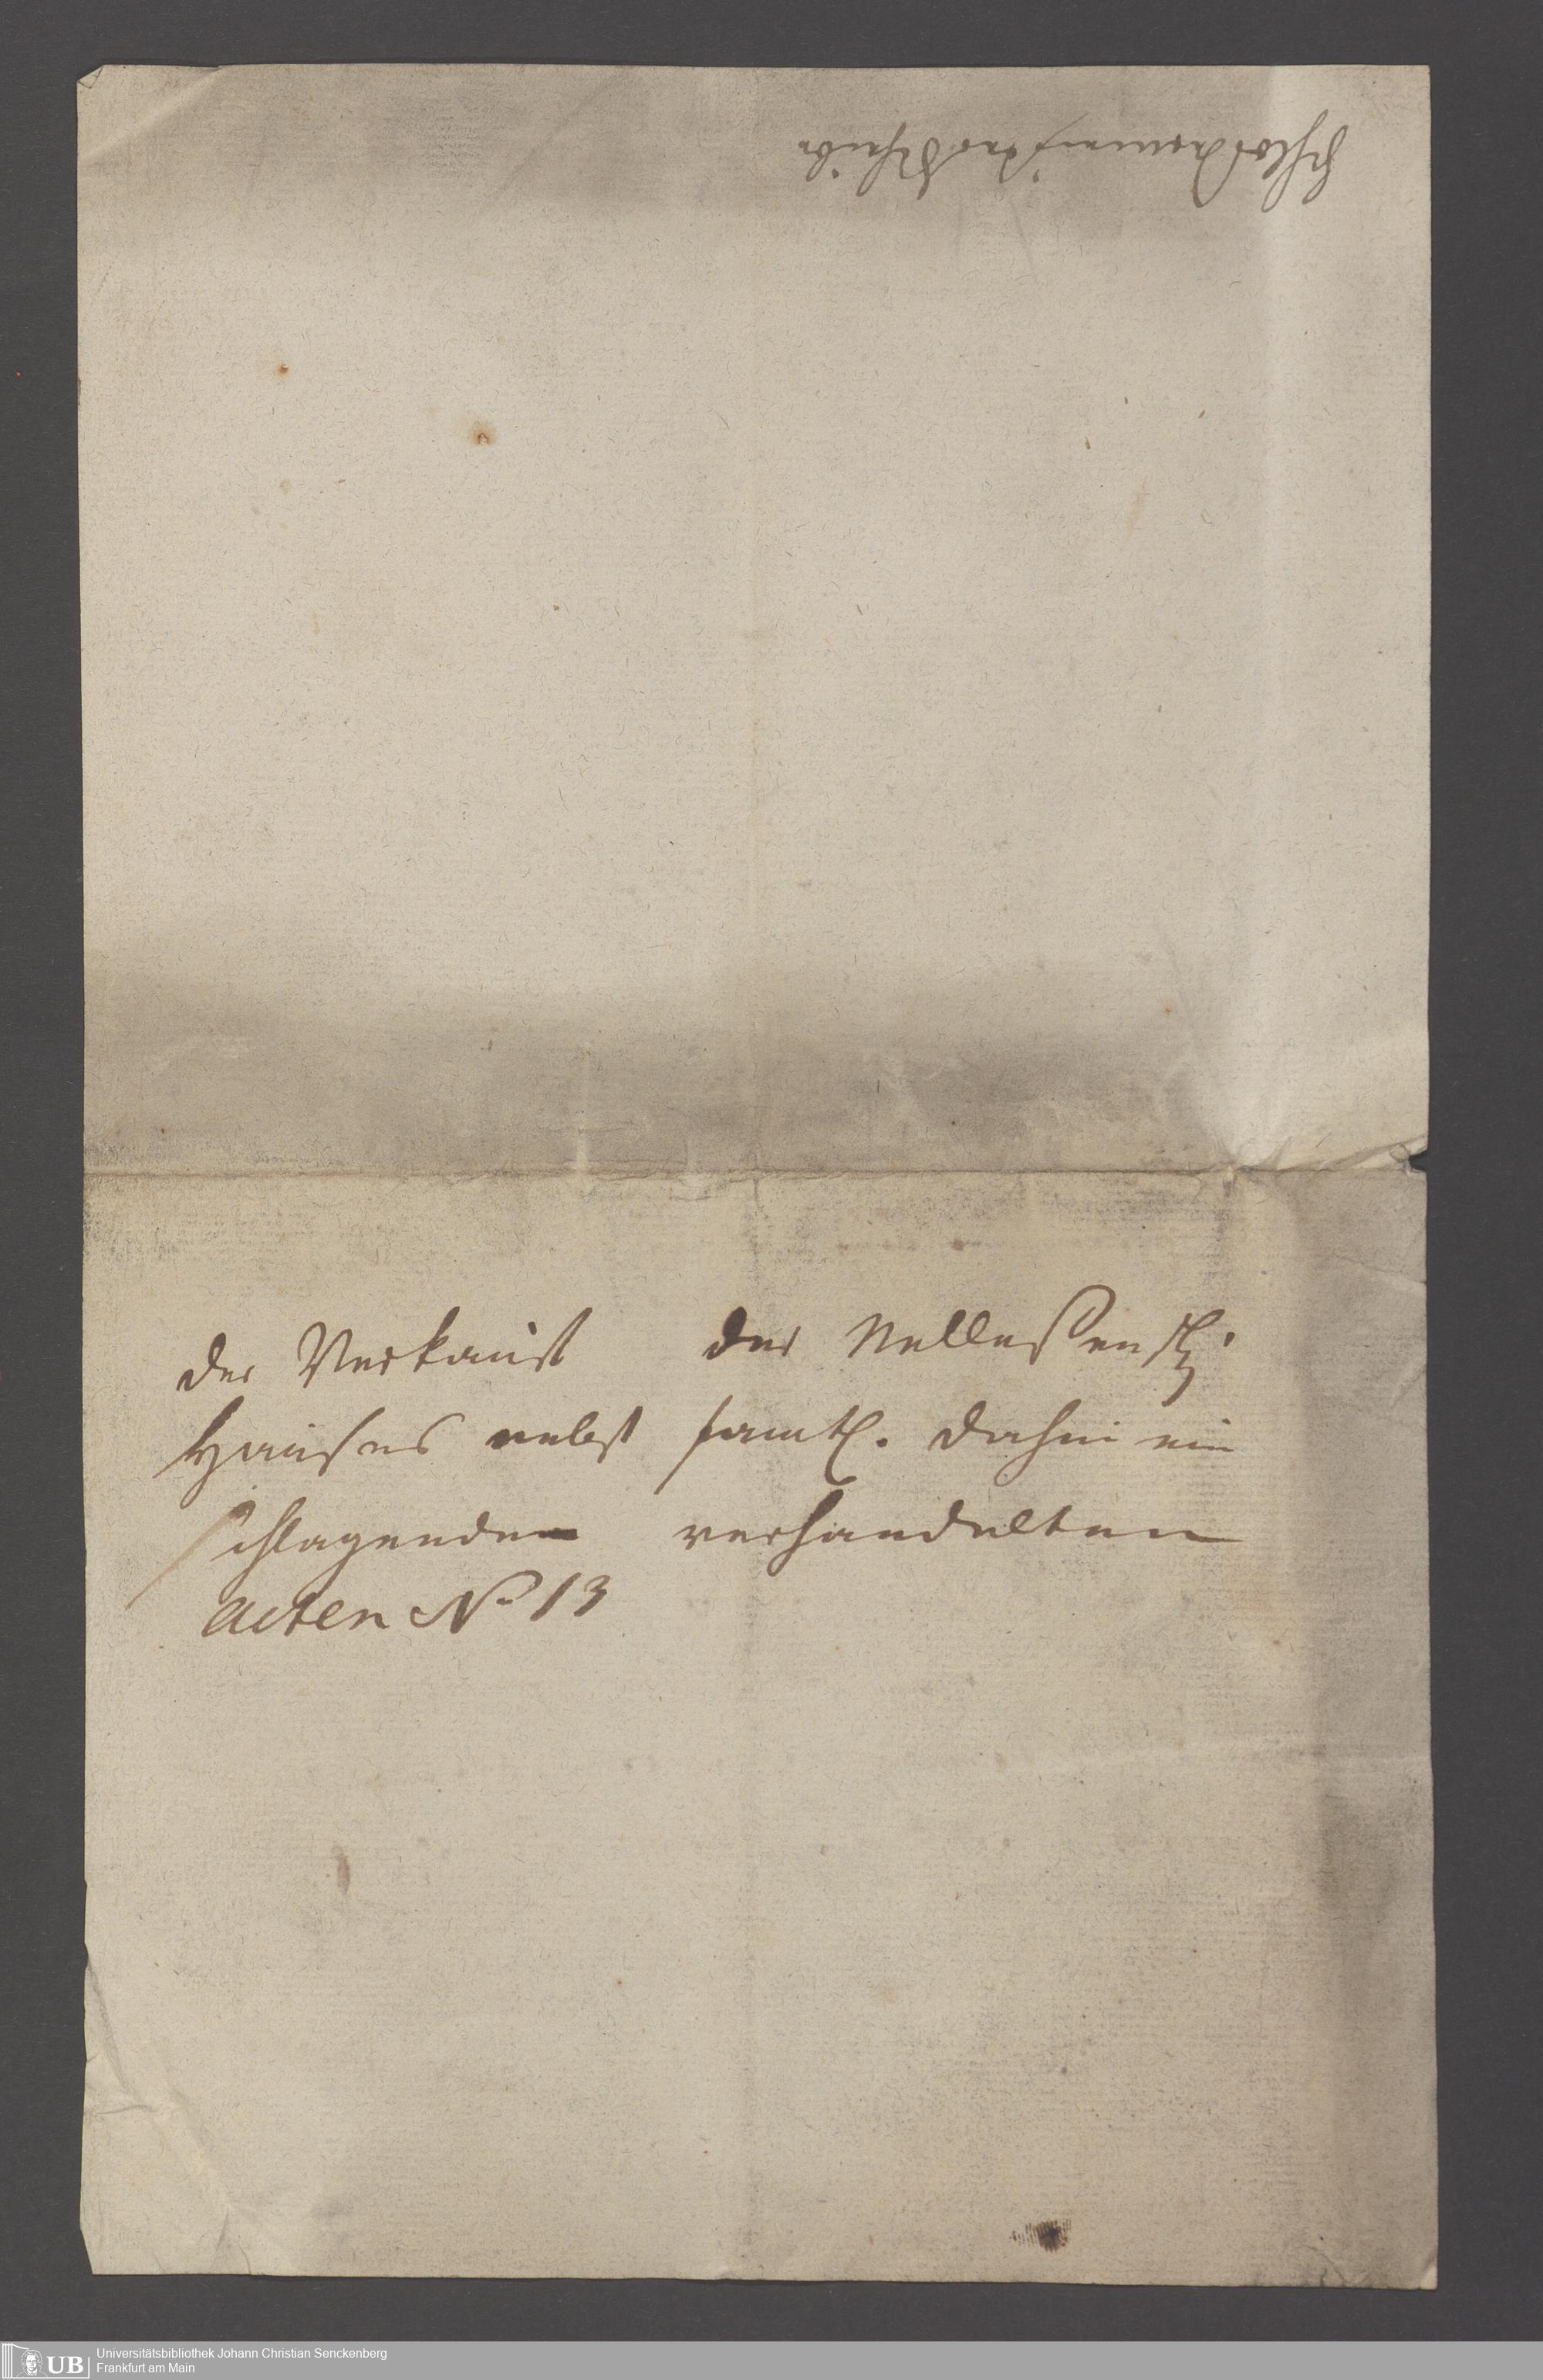 der Verkauf des Nelleßensch.
Hauses nebst samtl. dahin ein
schlagenden verhandelten
Acten No 13
Universitätsbibliothek Johann Christian Senckenberg
Frankfurt am Main
UB